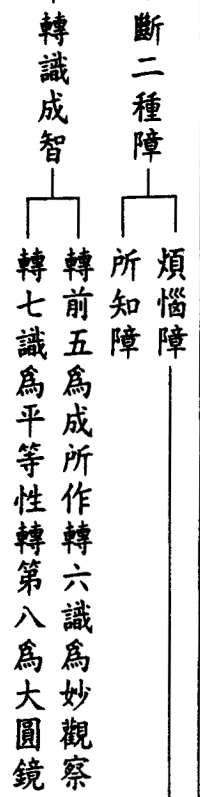 斷二種障
煩惱障
所知障
轉識成智
轉前五爲成所作轉六識爲妙觀察
轉七識爲平等性轉第八爲大圓鏡